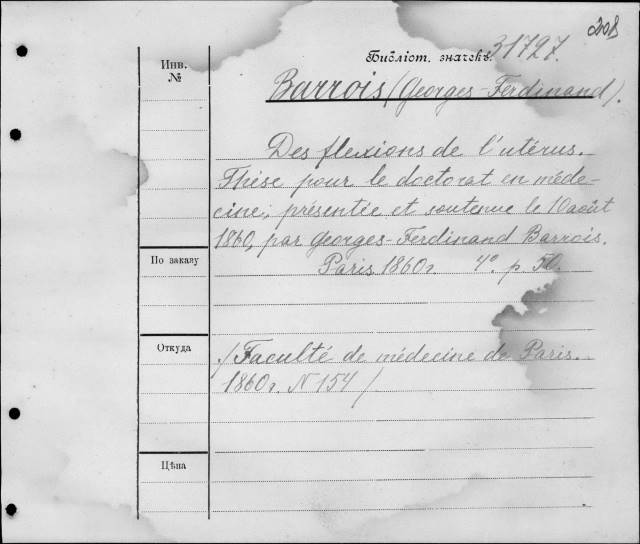 208
Инв.
№
Библіот. значекъ 31727.
Barrois (Georges-Ferdinand).
Des flexions de l'utérus.
Thèse pour le doctorat en méde-
cine; présentée et soutenue le 10 août
1860, par Georges-Ferdinand Barrois.
По заказу
Paris 1860г. 4º. p. 50.
Откуда
/Faculté de médecine de Paris.
1860г. N 154/
Цѣна